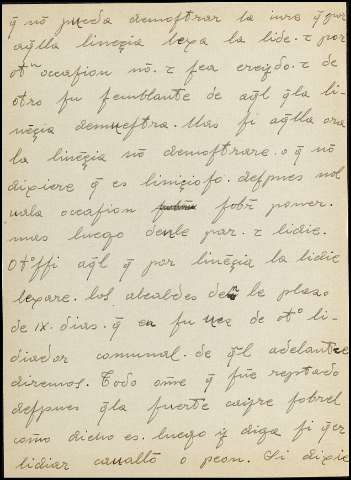 q̄ nō pueda demoſtrar la iura q̄ por
aq̄lla lineȝia lexa la lide. τ por
otᵃ occaſion nō. τ ſea creydo. τ de
otro ſu ſemblante de aq̄l q̄la li-
neȝia demueſtra. Mas ſi aq̄lla ora
la lineȝia nō demoſtrare. o q̄ nō
dixiere q̄ es liniȝioſo. deſpues nol
uala occaſion ſobr̄ poner.
mas luego denle par. τ lidie.
Otᵒſſi aq̄l q̄ por lineȝia la lidie
lexare. los alcaldes denle plazo
de ix. dias. q̄ en ſu uez de otᵒ li-
diador comunal. de q̄l adelante
diremos. Todo ōme q̄ fue reptado
deſpues q̄la ſuerte cayre ſobrel
como dicho es. luego q̄ diga ſi q̄er
lidiar cauallō o peon. Si dixie